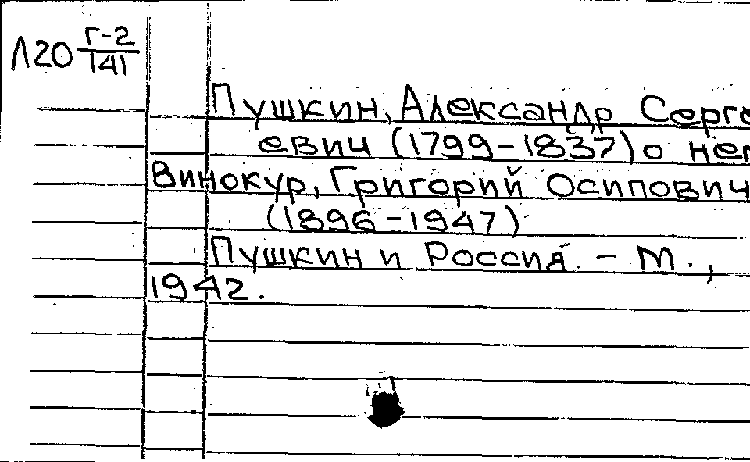 Л20 Г-2
141
Пушкин, Александр Серге
евич (1799-1837) о нег
Винокур, Григорий Осипович
(1896-1947)
Пушкин и Россия. - М.,
1942.